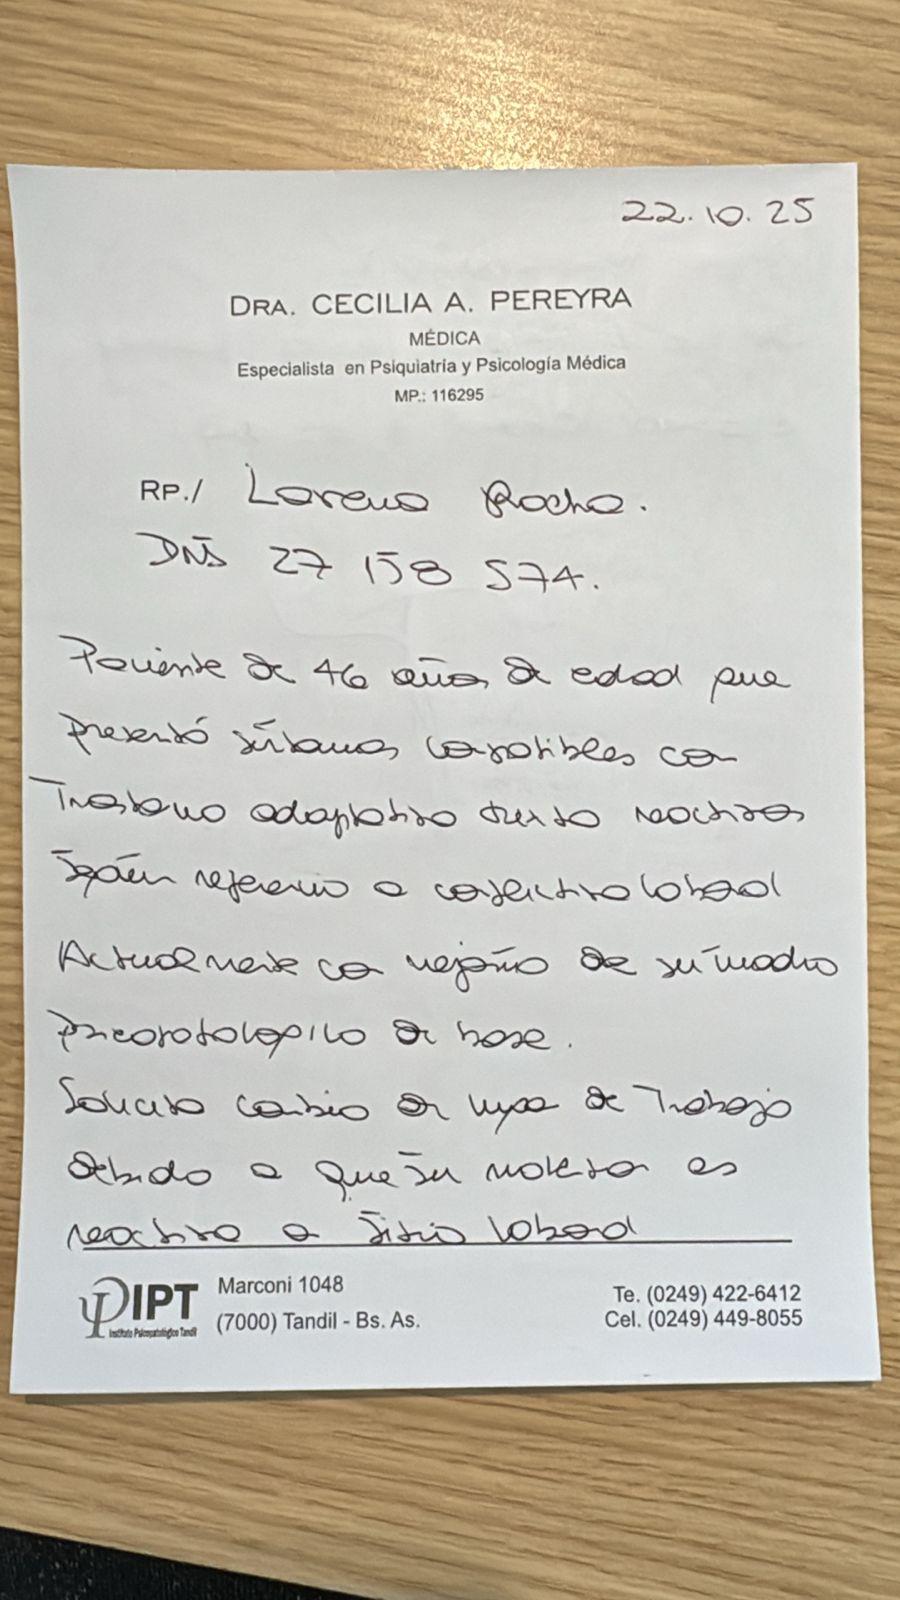 22.10.25
DRA. CECILIA A. PEREYRA
MÉDICA
Especialista en Psiquiatría y Psicología Médica
MP.: 116295
RP./ Lorena Rocha.
DNI 27 158 574.
Paciente de 46 años de edad que
presentó síntomas compatibles con
Trastorno adaptativo mixto reactivo
según refiere a conflictiva laboral
Actualmente con mejoría de su cuadro
psicopatológico de base.
Solicito cambio de lugar de Trabajo
debido a que su malestar es
reactivo a sitio laboral
IPT
Instituto Psicopatológico Tandil
Marconi 1048
(7000) Tandil - Bs. As.
Te. (0249) 422-6412
Cel. (0249) 449-8055